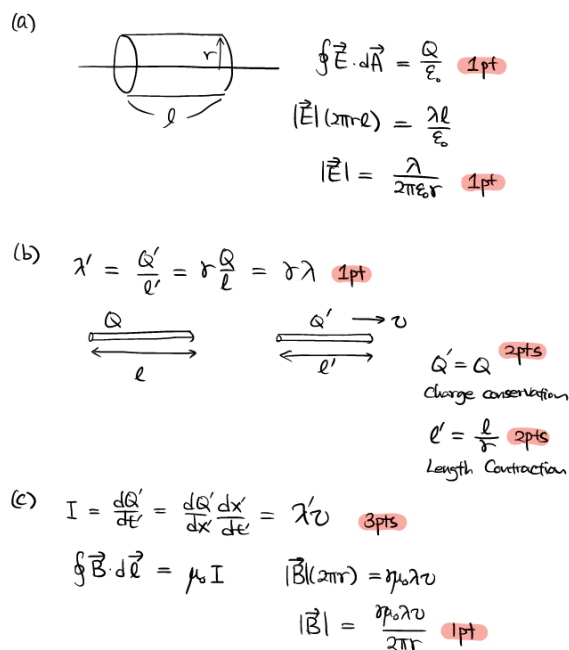 (a)
r
l
∮E⃗·dA⃗ = Q/ε₀ 1pt
|E⃗|(2πrl) = λl/ε₀
|E⃗| = λ/2πε₀r 1pt
(b) λ' = Q'/l' = γ Q/l = γλ 1pt
Q Q' → v
l l'
Q' = Q 2pts
Charge conservation
l' = l/γ 2pts
Length Contraction
(c) I = dQ'/dt' = dQ'/dx' dx'/dt' = λ'v 3pts
∮B⃗·dl⃗ = μ₀I |B⃗|(2πr) = γμ₀λv
|B⃗| = γμ₀λv/2πr 1pt